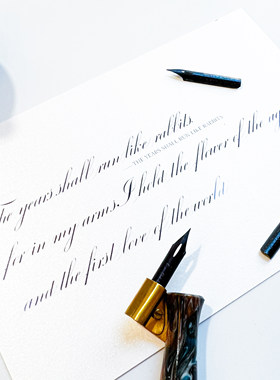 The years shall run like rabbits,
THE YEARS SHALL RUN LIKE RABBITS
for in my arms I hold the flower of the
and the first love of the world